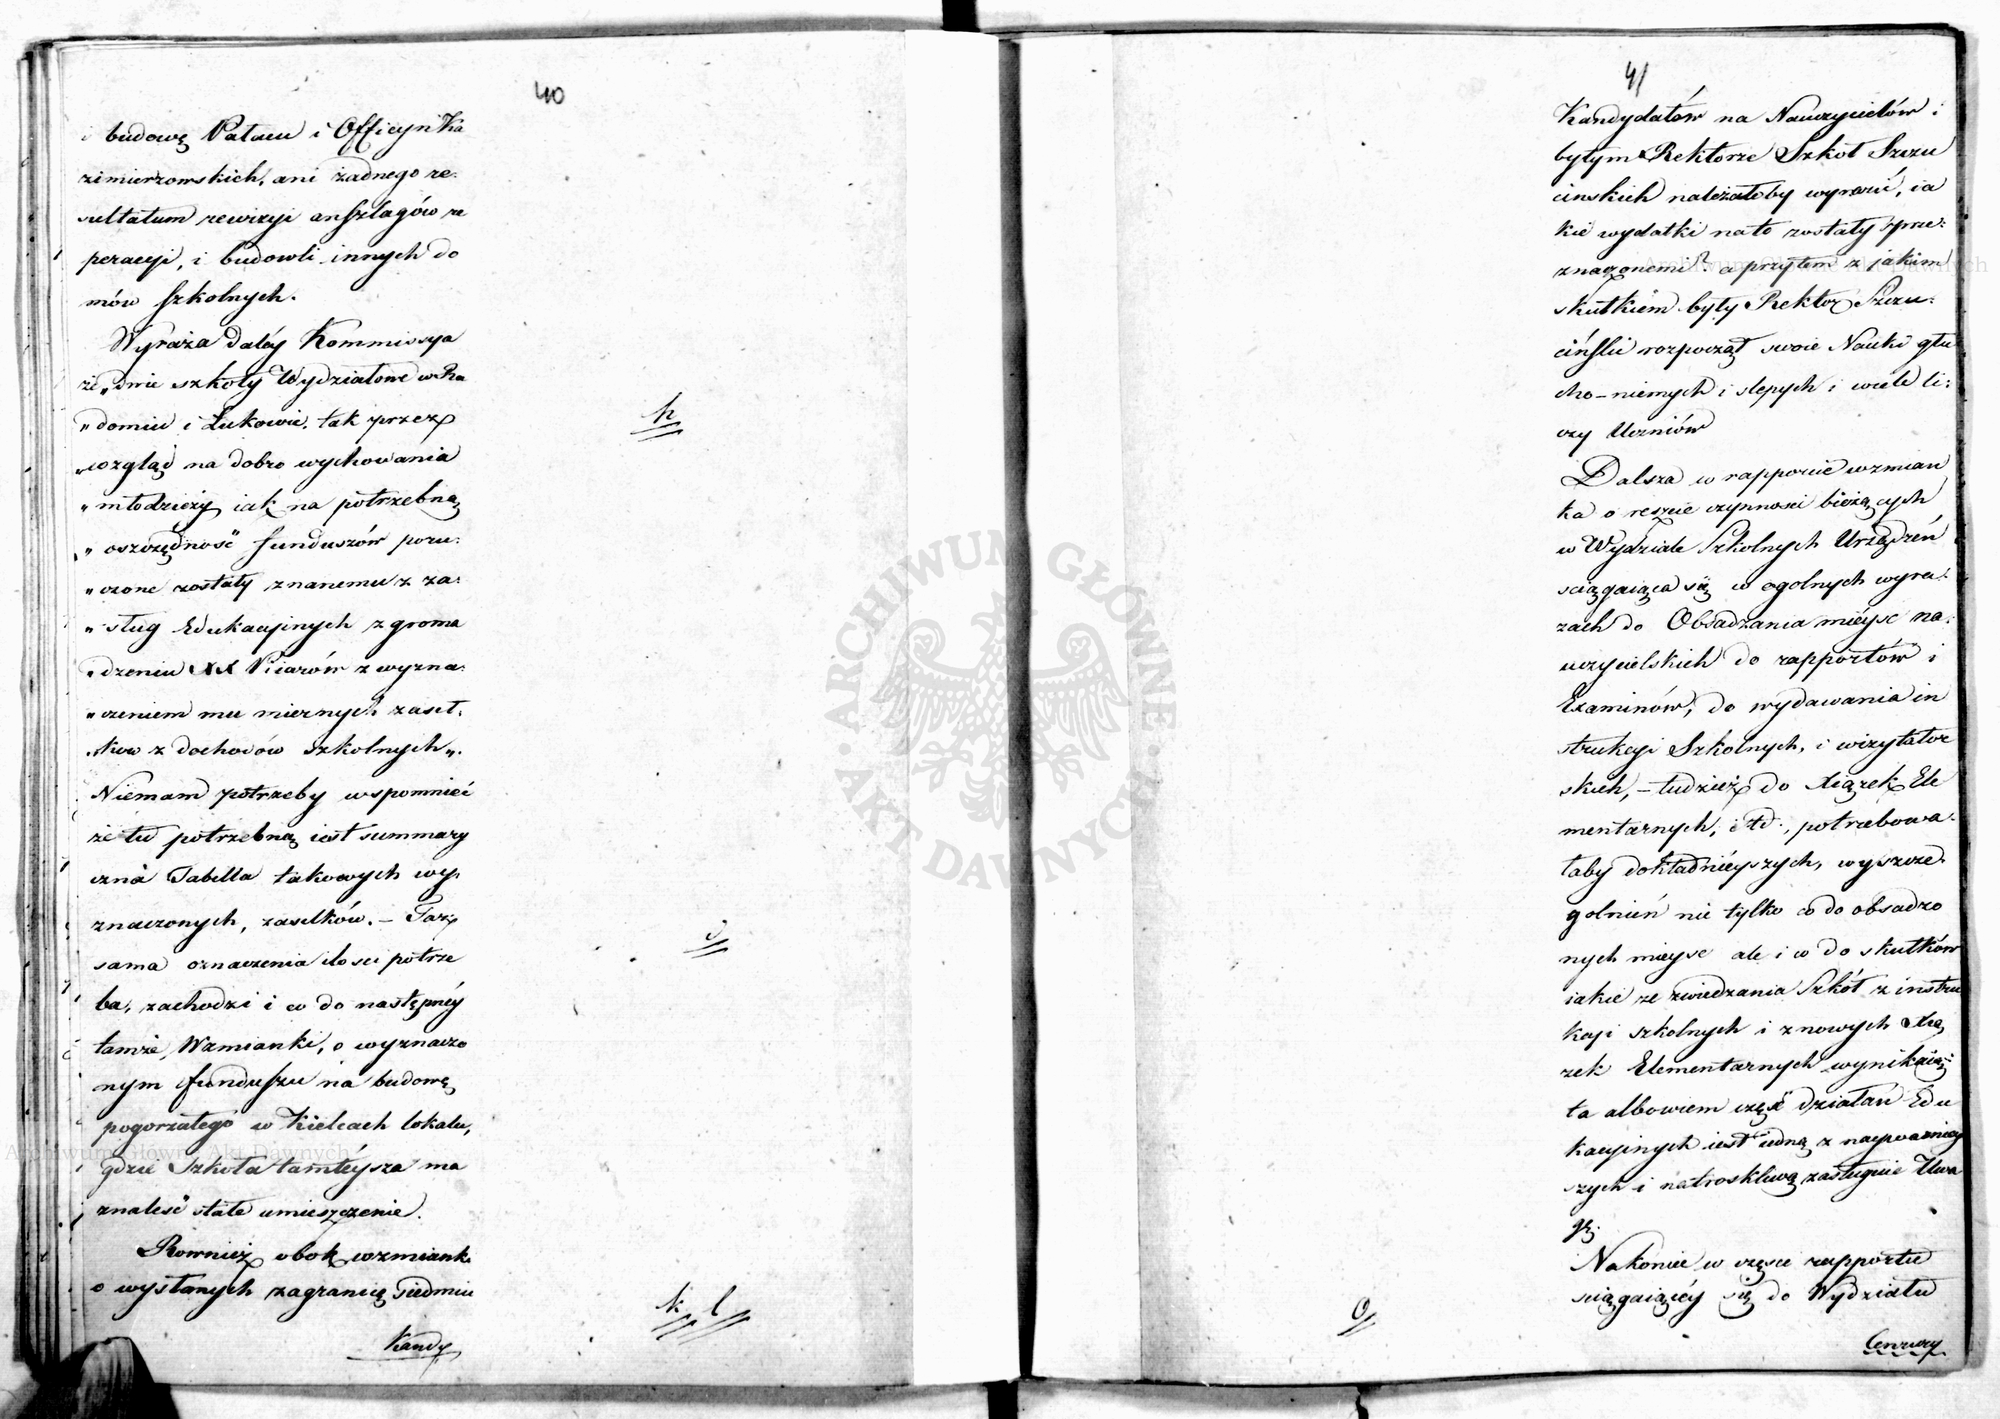 40
i budowę Pałacu i Officyn Ka
zimierzowskich, ani żadnego re:
sultatum rewizyi anszlagów re
peracyi, i budowli innych do
mów szkolnych.
Wyraża daléy Kommissya
że „dwie szkoły Wydziałowe w Ra
„domiu i Łukowie, tak przez
„wzgląd na dobro wychowania
„młodzieży iak na potrzebną
„oszczędność funduszów poru:
„czone zostały znanemu z za:
„sług Edukacyinych zgroma
„dzeniu XX Piiarów z wyzna:
„czeniem mu miernych zasił:
„ków z dochodów szkolnych„.
Niemam potrzeby wspomnieć
że tu potrzebną iest summary
czna Tabella takowych wy:
znaczonych, zasiłków. – Taż
sama oznaczenia ilości potrze
ba, zachodzi i co do następnéy
tamże, Wzmianki, o wyznaczo
nym funduszu na budowę
pogorzałego w Kielcach lokalu,
gdzie Szkoła tamtéysza ma
znaleść stałe umieszczenie.
Rownież obok wzmianki
o wysłanych zagranicę siedmiu
Kandy
h
i
k l
41
Kandydatów na Nauczycielów i
byłym Rektorze Szkoł Szczu
cinskich należałoby wyrazić, ia
kie wydatki na to zostały prze:
znaczonemi? a przytem z jakim
skutkiem były Rektor Szczu:
cińskii rozpoczął swoie Nauki głu
cho–niemych i slepych i wiele li:
czy Uczniów
Dalsza w rapporcie wzmian
ka o reszcie czynnosci bieżących
w Wydziale Szkolnych Urządzeń
sciągaiąca się w ogolnych wyra:
zach do Obsadzania mieysc na:
uczycielskich do rapportów i
Examinów, do wydawania in
strukcyi Szkolnych, i wizytator
skich, – tudzież do Xiążek Ele
mentarnych, i td:, potrzebowa:
łaby dokładnieyszych, wyszcze:
golnień nie tylko co do obsadzo
nych mieysc ale i co do skutków
iakie ze zwiedzania Szkół z instru
kcyi szkolnych i z nowych Xią
żek Elementarnych wynikaią:
ta albowiem część działań Edu
kacyinych iest iedną z naywazniey
szych i na troskliwą zasługuie Uwa
gę.
Nakoniec w częsci rapportu
sciągaiącéy się do Wydziału
Cenzury
o
ARCHIWUM GŁÓWNE AKT DAWNYCH
Archiwum Główne Akt Dawnych
Archiwum Główne Akt Dawnych